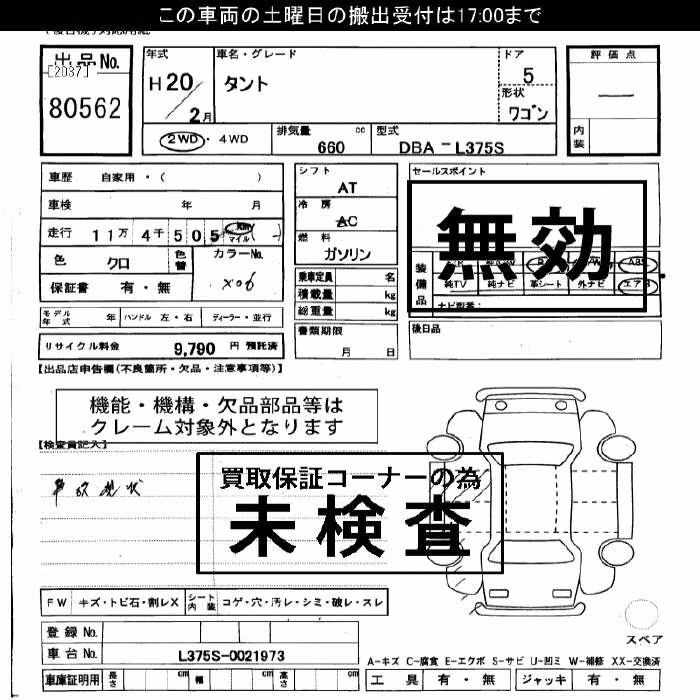 この車両の土曜日の搬出受付は17:00まで
出品No.
[2037]
80562
年式
H20/2月
車名・グレード
タント
ドア
5
形状
ワゴン
評価点
—
内装
2WD・4WD
排気量 cc
660
型式
DBA-L375S
車歴 自家用・( )
車検 年 月
走行 11万 4千 505 Km マイル
色 クロ
色替
カラーNo.
X06
保証書 有・無
シフト
AT
冷房
AC
燃料
ガソリン
乗車定員 名
積載量 kg
総重量 kg
書類期限
月 日
セールスポイント
無効
装備品
純TV 純ナビ 革シート 外ナビ エアB
ABS
ナビ型番:
後日品
モデル年式 年 ハンドル 左・右 ディーラー・並行
リサイクル料金 9,790 円 預託済
【出品店申告欄(不良箇所・欠品・注意事項等)】
機能・機構・欠品部品等は
クレーム対象外となります
【検査員記入】
事故現状
買取保証コーナーの為
未検査
FW キズ・トビ石・割レX シート内装 コゲ・穴・汚レ・シミ・破レ・スレ
登録No.
車台No. L375S-0021973
車庫証明用 長さ cm 幅 cm 高さ cm
スペア
A-キズ C-腐食 E-エクボ S-サビ U-凹ミ W-補修 XX-交換済
工具 有・無 ジャッキ 有・無